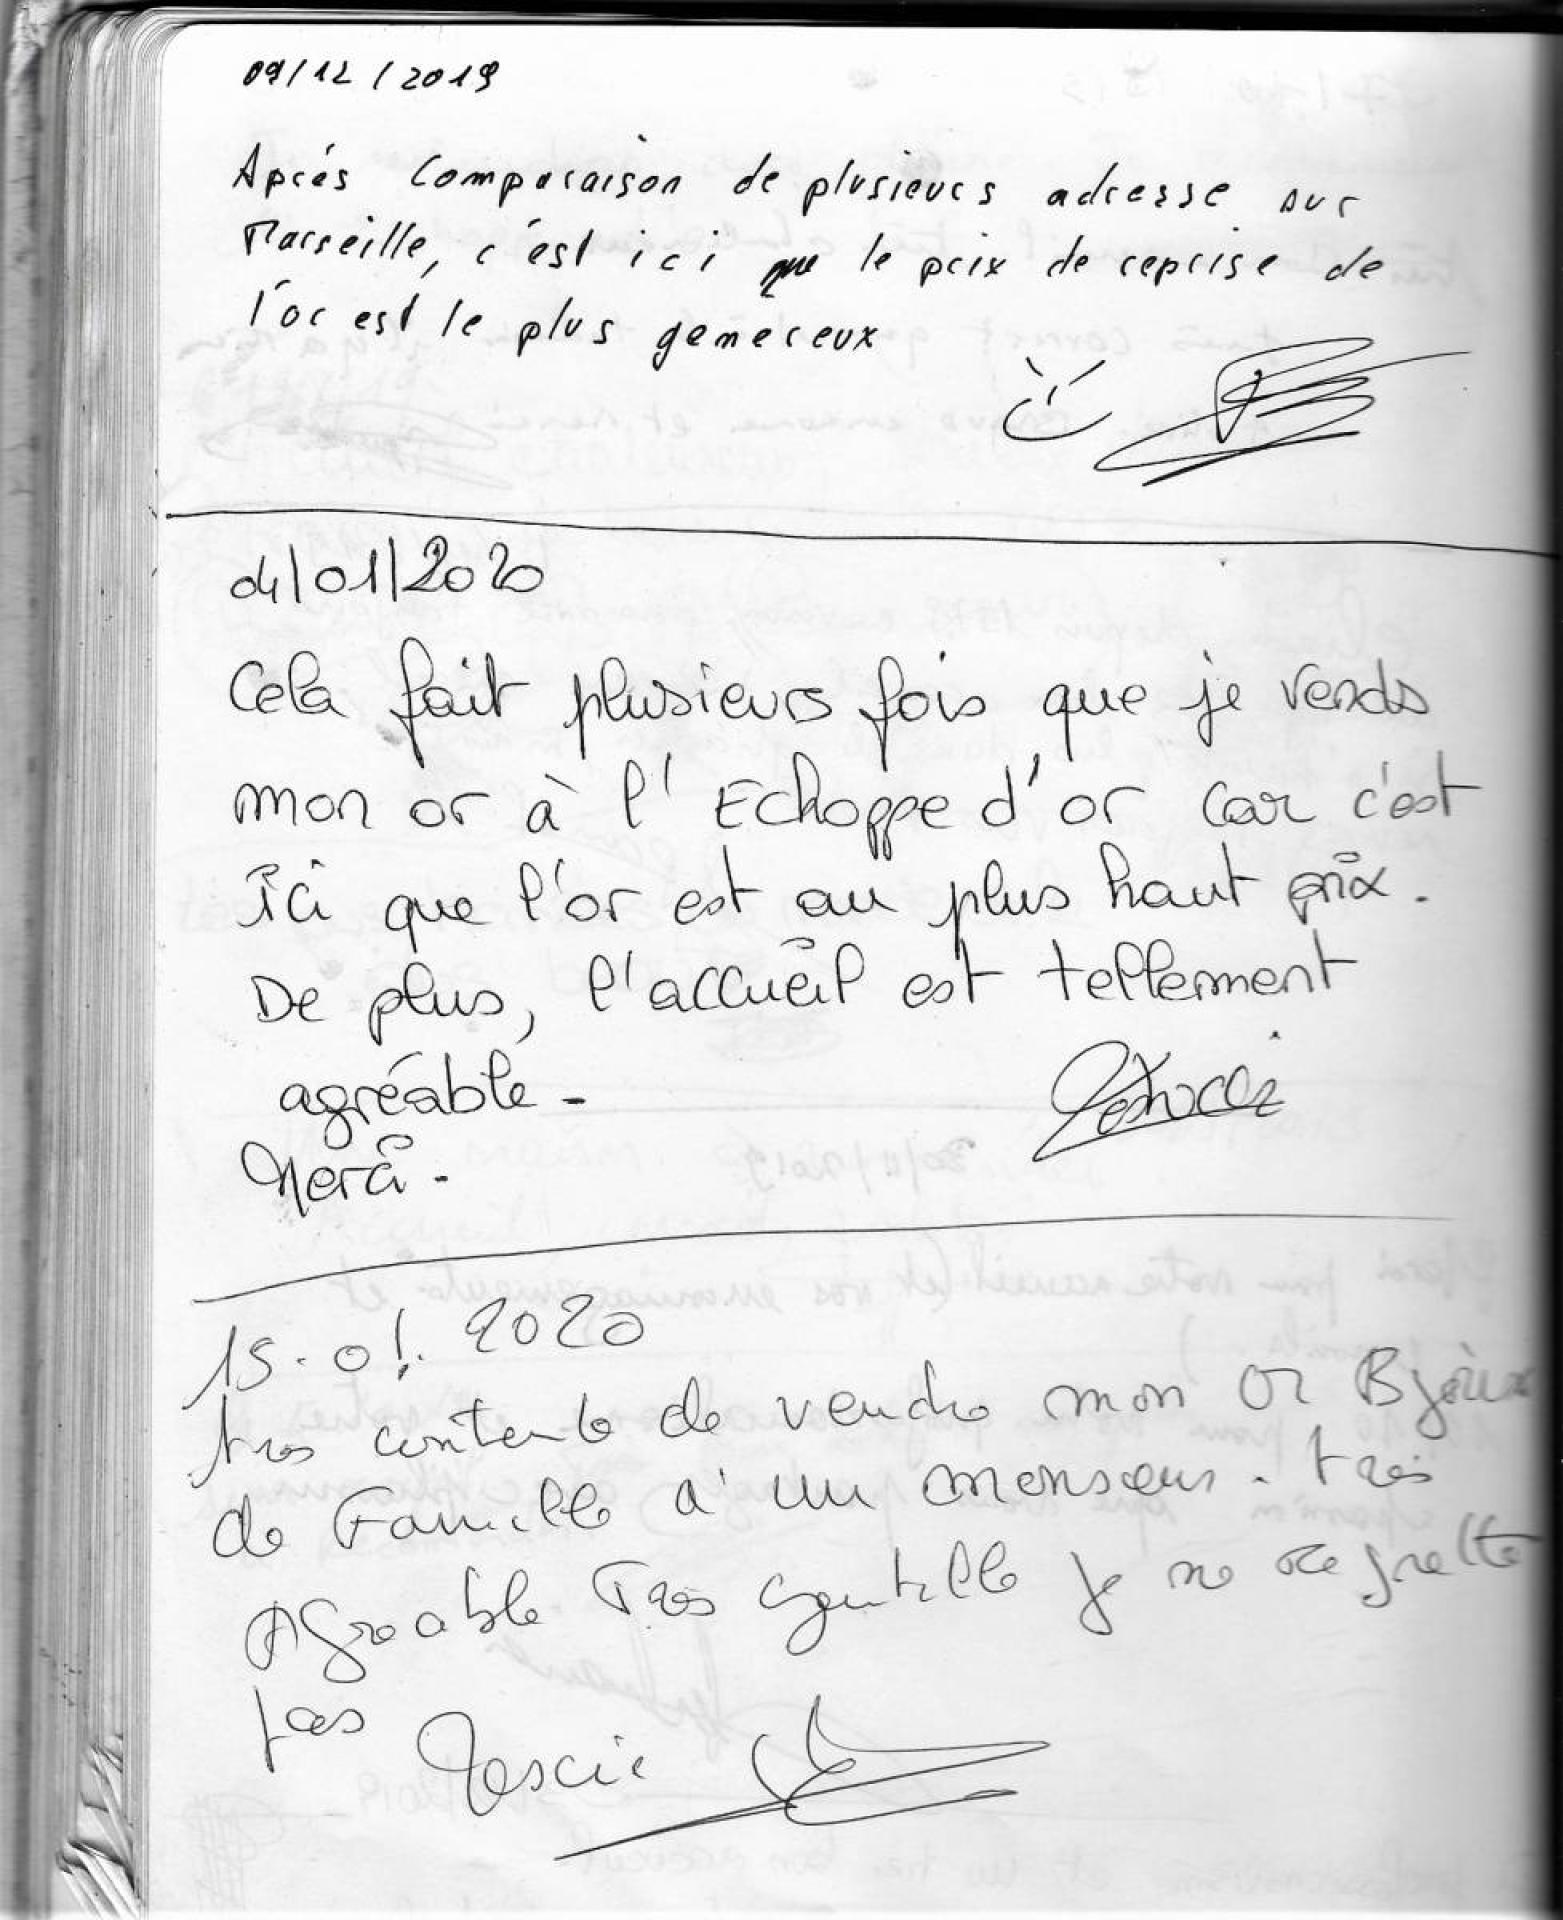 09/12/2019
Aprés Comparaison de plusieurs adresse sur
Marseille, c'est ici que le prix de reprise de
l'or est le plus genereux
04/01/2020
Cela fait plusieurs fois que je vends
mon or à l'Echoppe d'or car c'est
ici que l'or est au plus haut prix.
De plus, l'accueil est tellement
agréable -
Merci -
15.01.2020
tres contente de vendre mon Or Bijoux
de Famille a un monsœur. trés
Agreable Tres gentille je ne regrette
pas